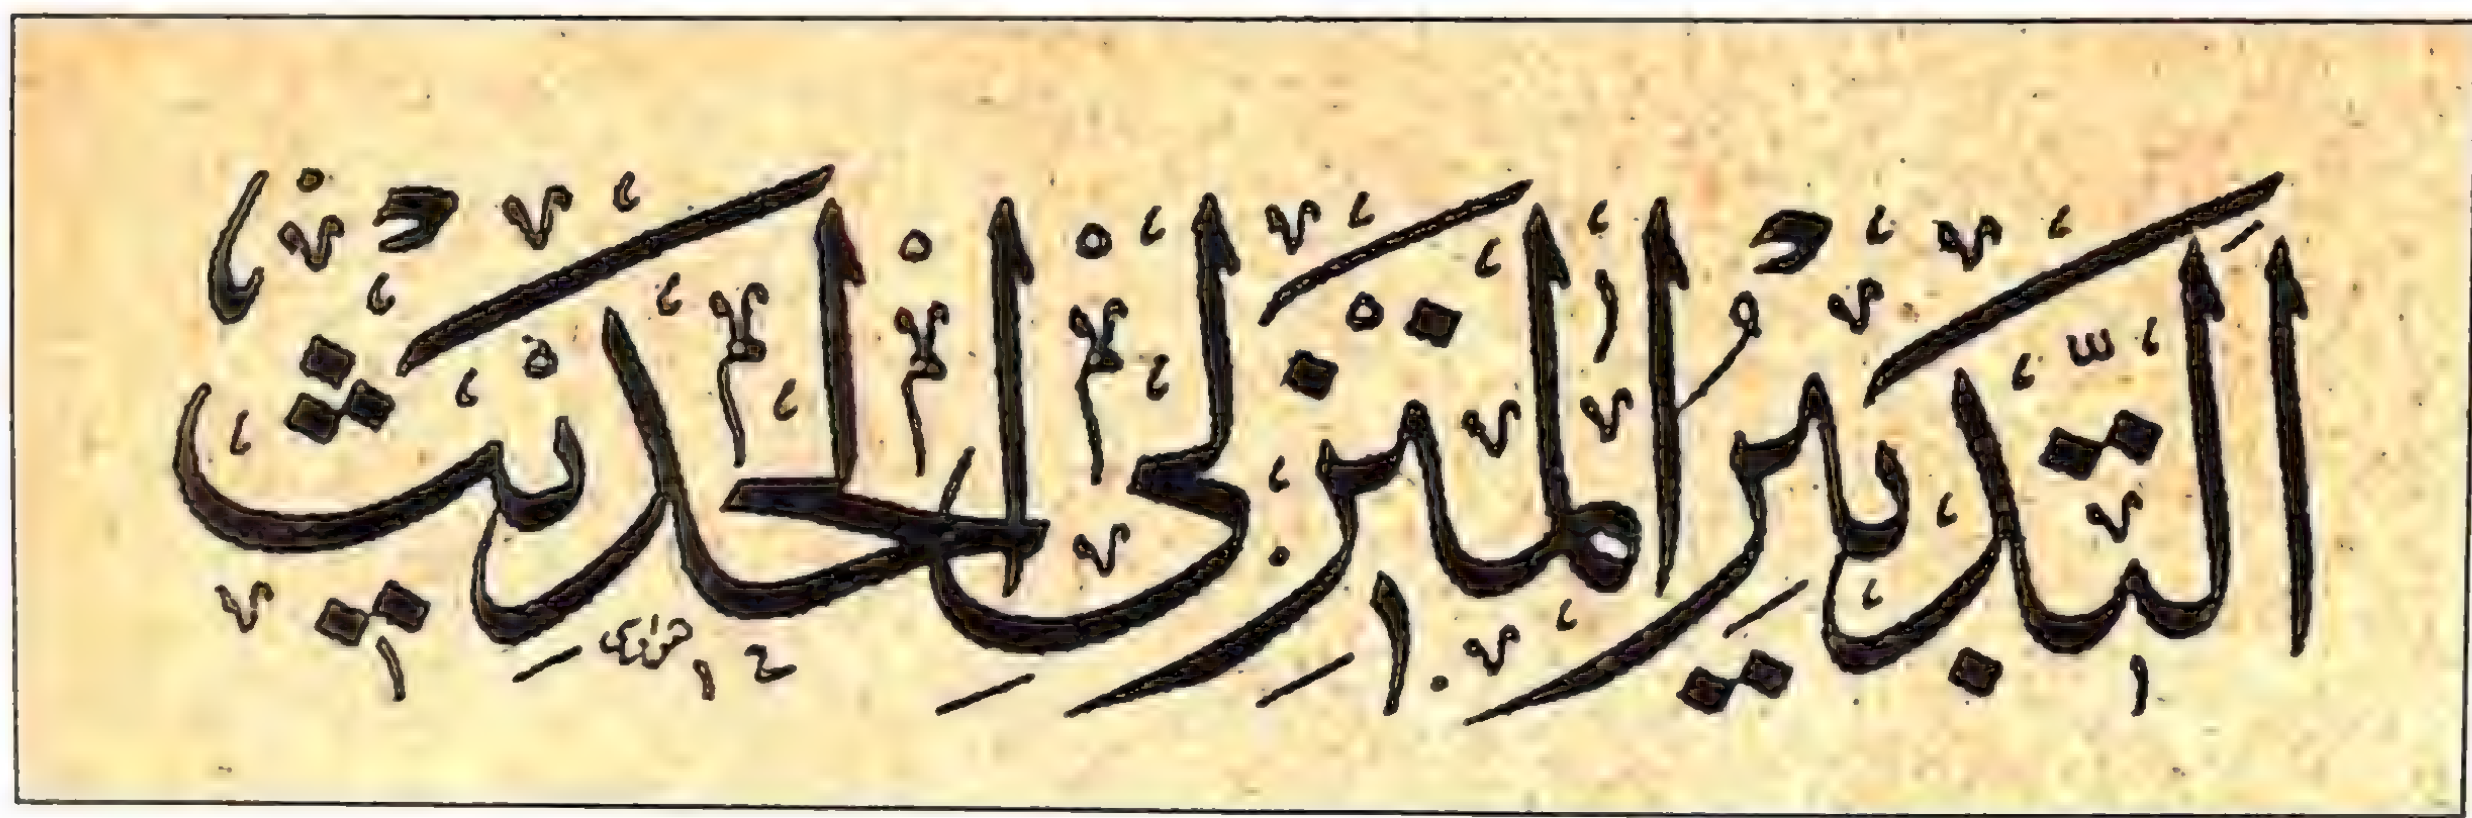 التدبير المنزلي الحديث